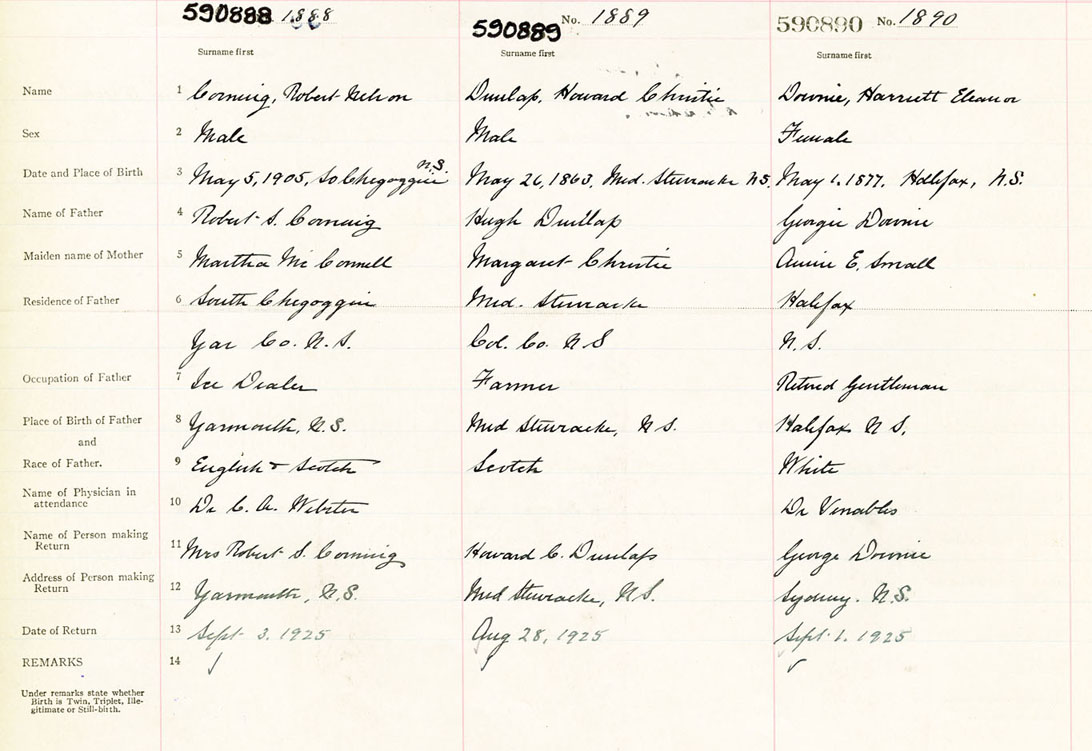 590888 1888 590889 No. 1889 590890 No. 1890
Surname first Surname first Surname first
Name 1 Corning, Robert Nelson Dunlap, Howard Christie Downie, Harriett Eleanor
Sex 2 Male Male Female
N.S.
Date and Place of Birth 3 May 5, 1905, So Chegoggin May 26, 1863, Mid. Stewiacke N.S. May 1, 1877, Halifax, N.S.
Name of Father 4 Robert S. Corning Hugh Dunlap George Downie
Maiden name of Mother 5 Martha Mc Connell Margaret Christie Annie E. Small
Residence of Father 6 South Chegoggin Mid. Stewiacke Halifax
Yar Co. N.S. Col. Co. N S N.S.
Occupation of Father 7 Ice Dealer Farmer Retired Gentleman
Place of Birth of Father 8 Yarmouth, N.S. Mid Stewiacke, N S. Halifax N S,
and
Race of Father. 9 English & Scotch Scotch White
Name of Physician in
attendance 10 Dr C. A. Webster Dr Venables
Name of Person making
Return 11 Mrs Robert S. Corning Howard C. Dunlap George Downie
Address of Person making
Return 12 Yarmouth, N.S. Mid Stewiacke, N.S. Sydney. N.S.
Date of Return 13 Sept 3. 1925 Aug 28, 1925 Sept 1. 1925
REMARKS 14
Under remarks state whether
Birth is Twin, Triplet, Ille-
gitimate or Still-birth.